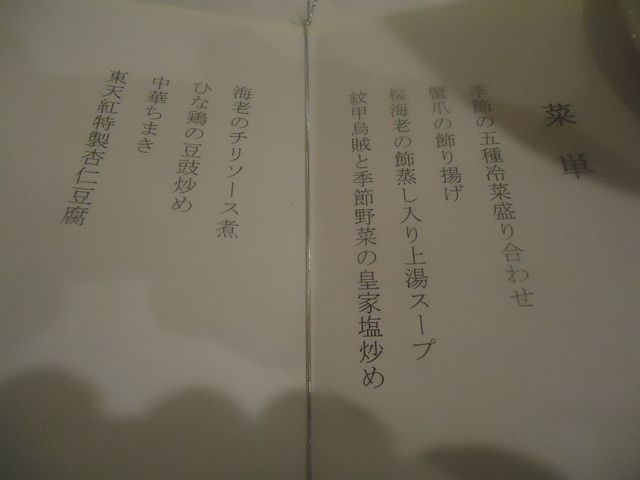 菜単
季節の五種冷菜盛り合わせ
蟹爪の飾り揚げ
桜海老の飾蒸し入り上湯スープ
紋甲烏賊と季節野菜の皇家塩炒め
海老のチリソース煮
ひな鶏の豆豉炒め
中華ちまき
東天紅特製杏仁豆腐